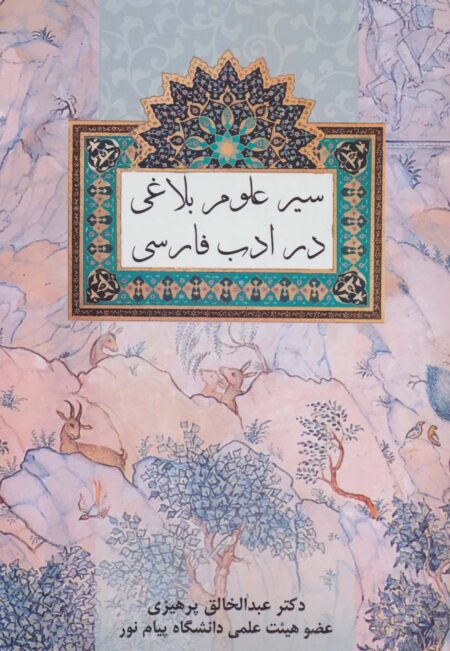 سیر علوم بلاغی
در ادب فارسی
دکتر عبدالخالق پرهیزی
عضو هیئت علمی دانشگاه پیام نور